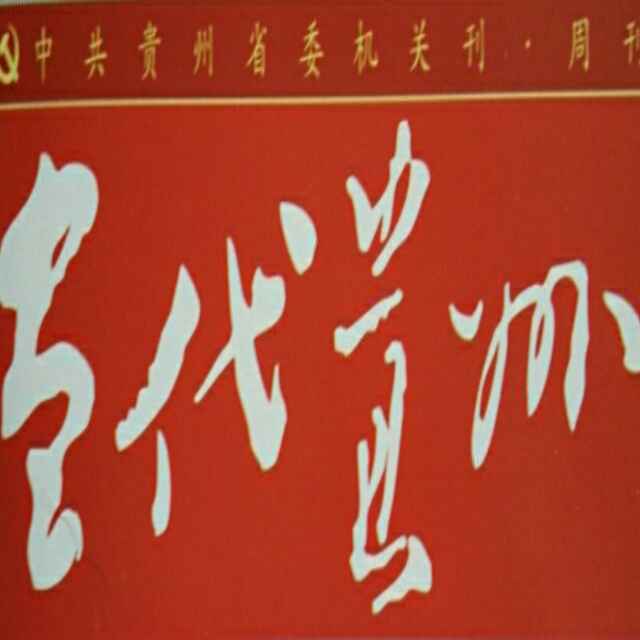 中共贵州省委机关刊·周刊
当代贵州